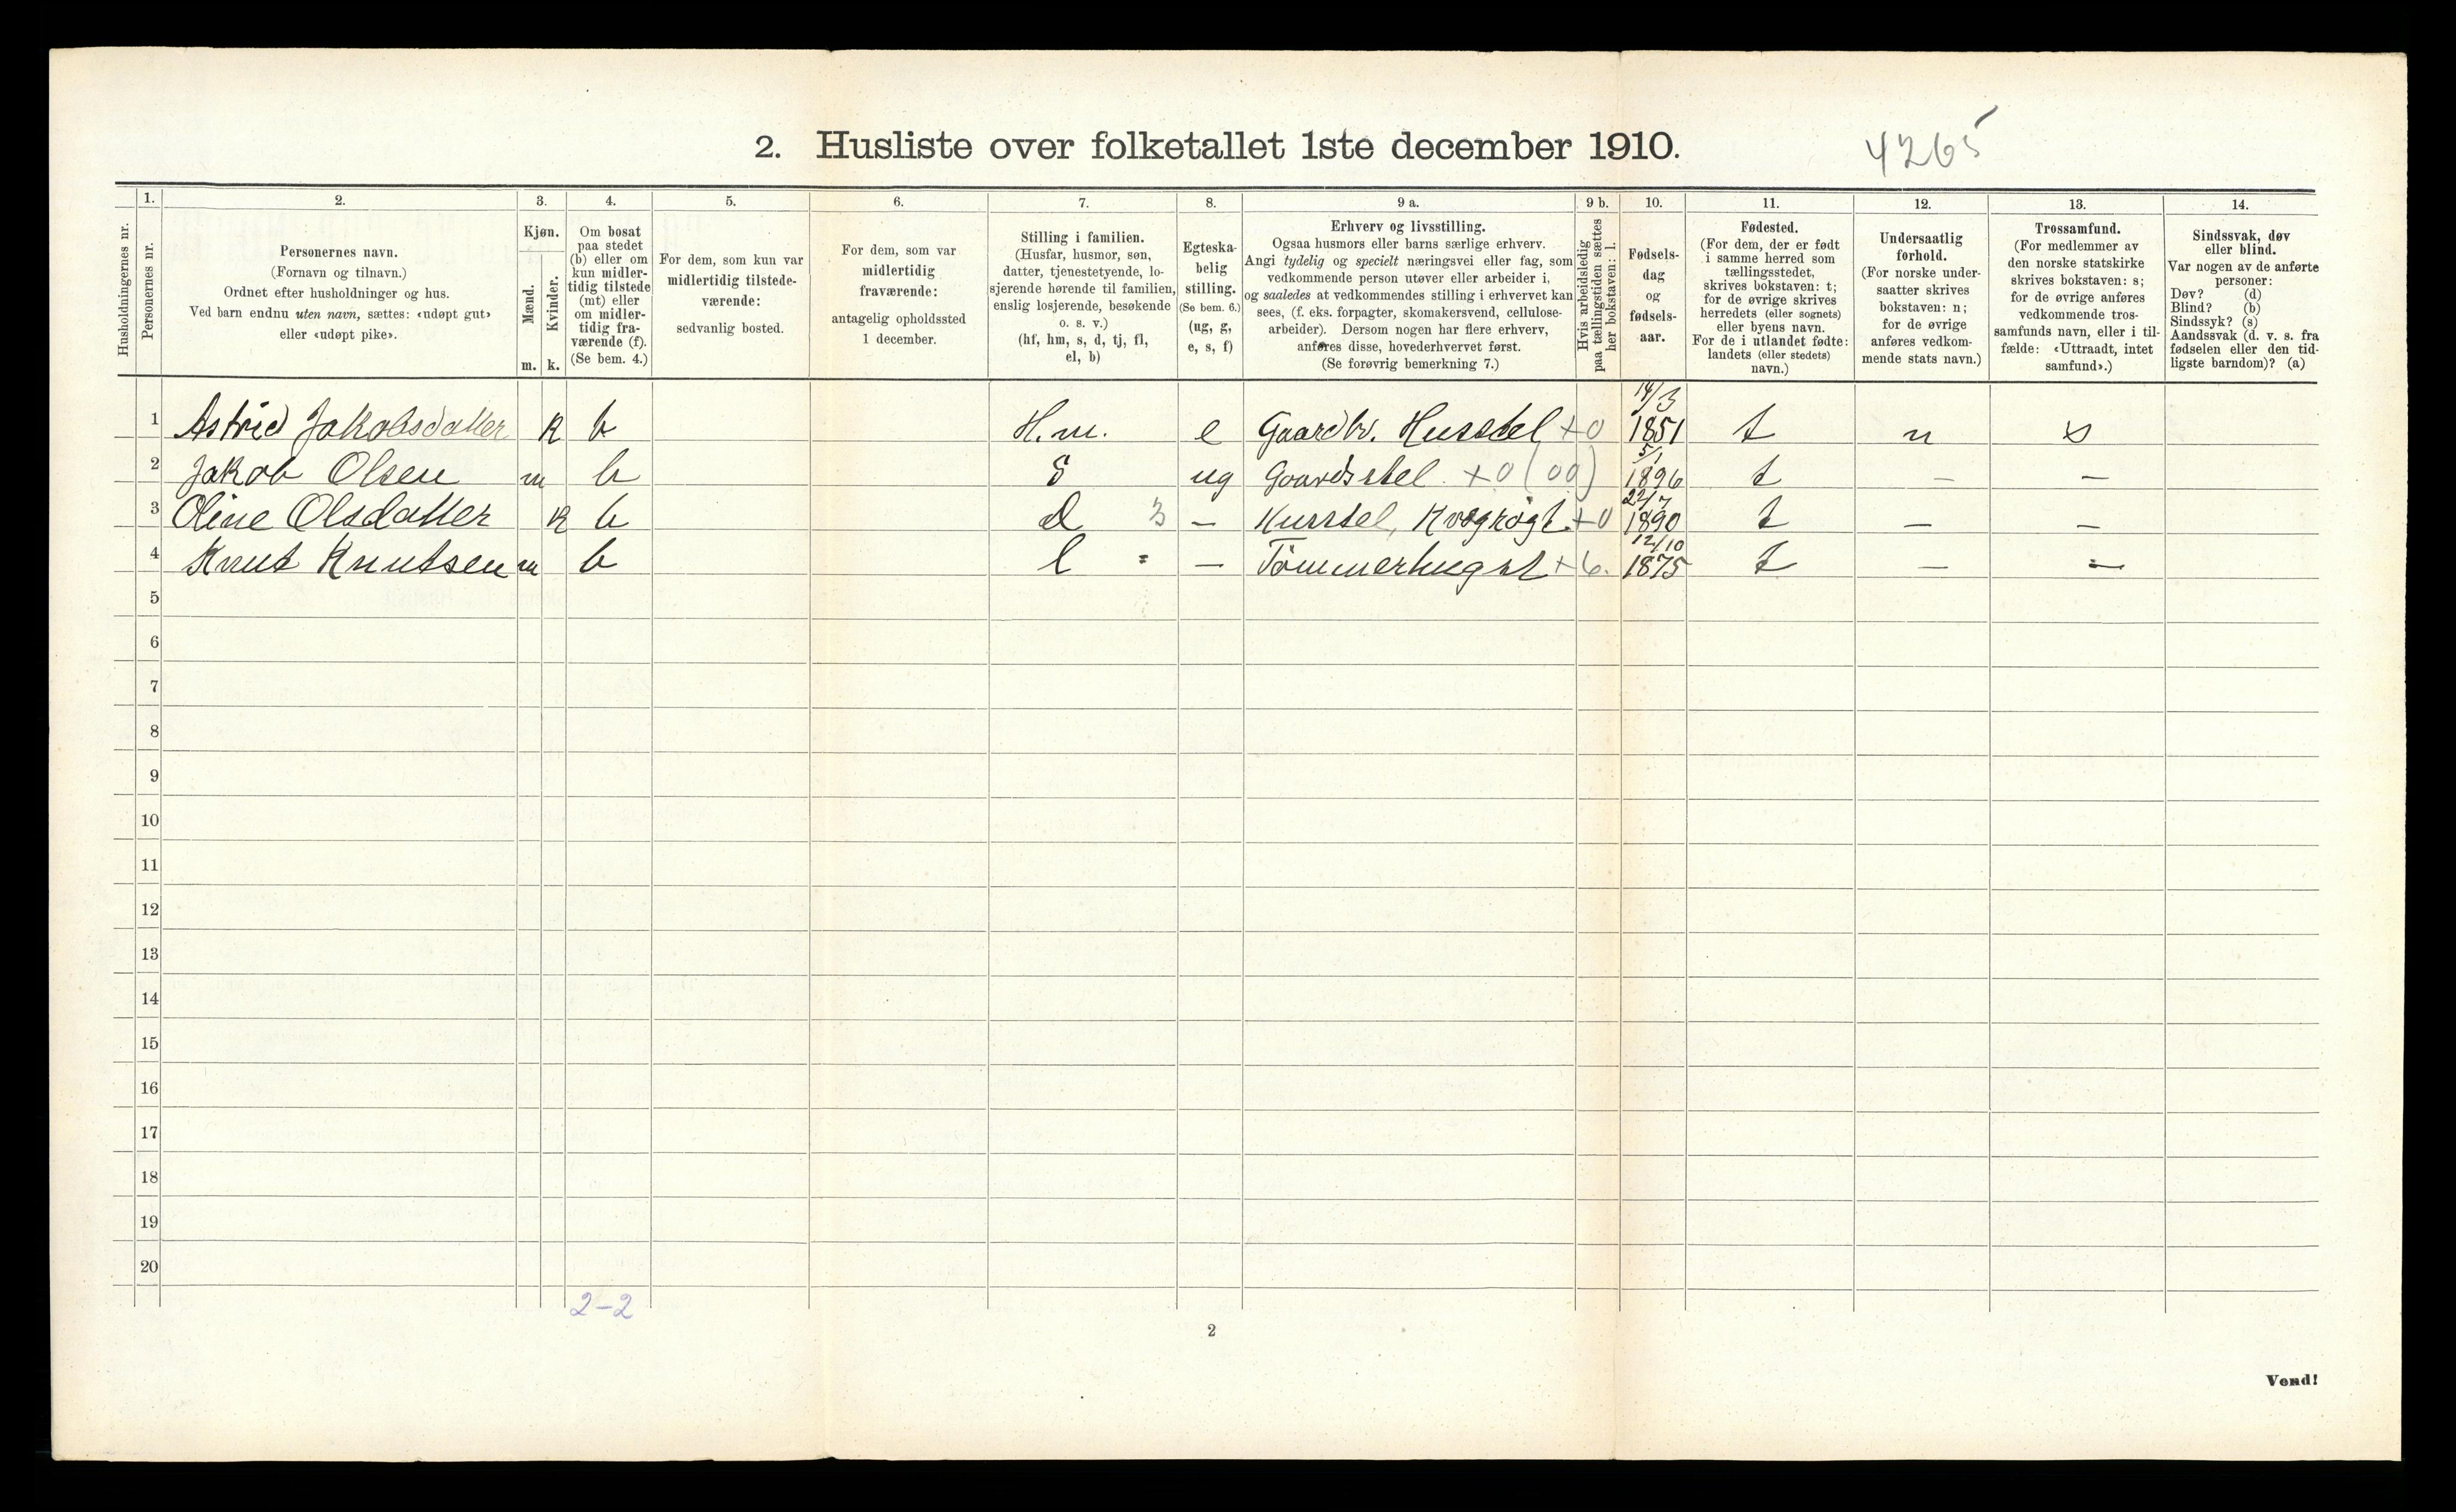 2. Husliste over folketallet 1ste december 1910.
4265
Husholdningernes nr.
1.
Personernes nr.
2.
Personernes navn.
(Fornavn og tilnavn.)
Ordnet efter husholdninger og hus.
Ved barn endnu uten navn, sættes: «udøpt gut»
eller «udøpt pike».
3.
Kjøn.
Mænd.
Kvinder.
m. k.
4.
Om bosat
paa stedet
(b) eller om
kun midler-
tidig tilstede
(mt) eller
om midler-
tidig fra-
værende (f).
(Se bem. 4.)
5.
For dem, som kun var
midlertidig tilstede-
værende:
sedvanlig bosted.
6.
For dem, som var
midlertidig
fraværende:
antagelig opholdssted
1 december.
7.
Stilling i familien.
(Husfar, husmor, søn,
datter, tjenestetyende, lo-
sjerende hørende til familien,
enslig losjerende, besøkende
o. s. v.)
(hf, hm, s, d, tj, fl,
el, b)
8.
Egteska-
belig
stilling.
(Se bem. 6.)
(ug, g,
e, s, f)
9 a.
Erhverv og livsstilling.
Ogsaa husmors eller barns særlige erhverv.
Angi tydelig og specielt næringsvei eller fag, som
vedkommende person utøver eller arbeider i,
og saaledes at vedkommendes stilling i erhvervet kan
sees, (f. eks. forpagter, skomakersvend, cellulose-
arbeider). Dersom nogen har flere erhverv,
anføres disse, hovederhvervet først.
(Se forøvrig bemerkning 7.)
9 b.
Hvis arbeidsledig
paa tællingstiden sættes
her bokstaven: l.
10.
Fødsels-
dag
og
fødsels-
aar.
11.
Fødested.
(For dem, der er født
i samme herred som
tællingsstedet,
skrives bokstaven: t;
for de øvrige skrives
herredets (eller sognets)
eller byens navn.
For de i utlandet fødte:
landets (eller stedets)
navn.)
12.
Undersaatlig
forhold.
(For norske under-
saatter skrives
bokstaven: n;
for de øvrige
anføres vedkom-
mende stats navn.)
13.
Trossamfund.
(For medlemmer av
den norske statskirke
skrives bokstaven: s;
for de øvrige anføres
vedkommende tros-
samfunds navn, eller i til-
fælde: «Uttraadt, intet
samfund».)
14.
Sindssvak, døv
eller blind.
Var nogen av de anførte
personer:
Døv? (d)
Blind? (b)
Sindssyk? (s)
Aandssvak (d. v. s. fra
fødselen eller den tid-
ligste barndom)? (a)
1 Astrid Jakobsdatter k b H.m. e Gaardbr. Husstel +0 14/3 1851 t n s
2 Jakob Olsen m b S ug Gaardsstel +0 (00) 5/1 1896 t — —
3 Oline Olsdatter k b d 3 — Husstel, Kvægrøgt +0 22/7 1890 t — —
4 Knut Knutsen m b l = — Tömmerhugst +6. 12/10 1875 t — —
5
6
7
8
9
10
11
12
13
14
15
16
17
18
19
20
2-2
2
Vend!